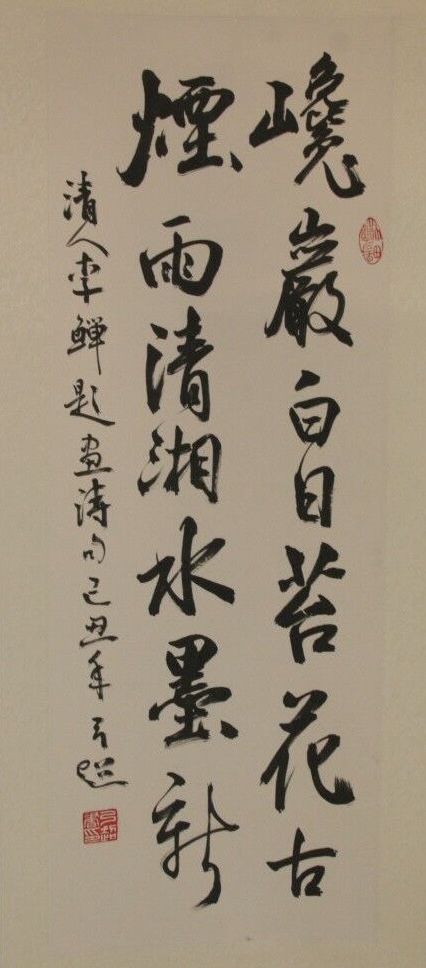 巉巖白日苔花古
煙雨清湘水墨新
清人李鱓題畫詩句己丑年弓超